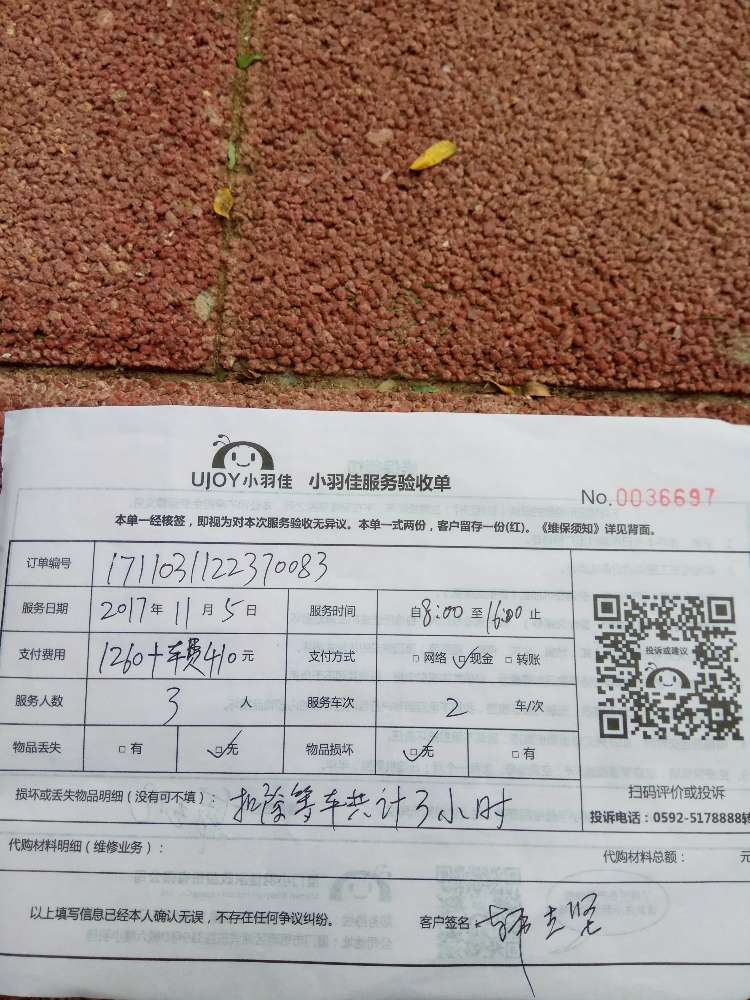 UJOY小羽佳 小羽佳服务验收单
No.0036697
本单一经核签，即视为对本次服务验收无异议。本单一式两份，客户留存一份(红)。《维保须知》详见背面。
订单编号 1711031122370083
服务日期 2017年11月5日 服务时间 自8:00至16:00止
支付费用 1260+车费410元 支付方式 □网络 ☑现金 □转账
服务人数 3人 服务车次 2车/次
物品丢失 □有 ☑无 物品损坏 ☑无 □有
投诉或建议
扫码评价或投诉
投诉电话：0592-5178888转
损坏或丢失物品明细（没有可不填）：扣除等车共计3小时
代购材料明细（维修业务）： 代购材料总额： 元
以上填写信息已经本人确认无误，不存在任何争议纠纷。 客户签名：